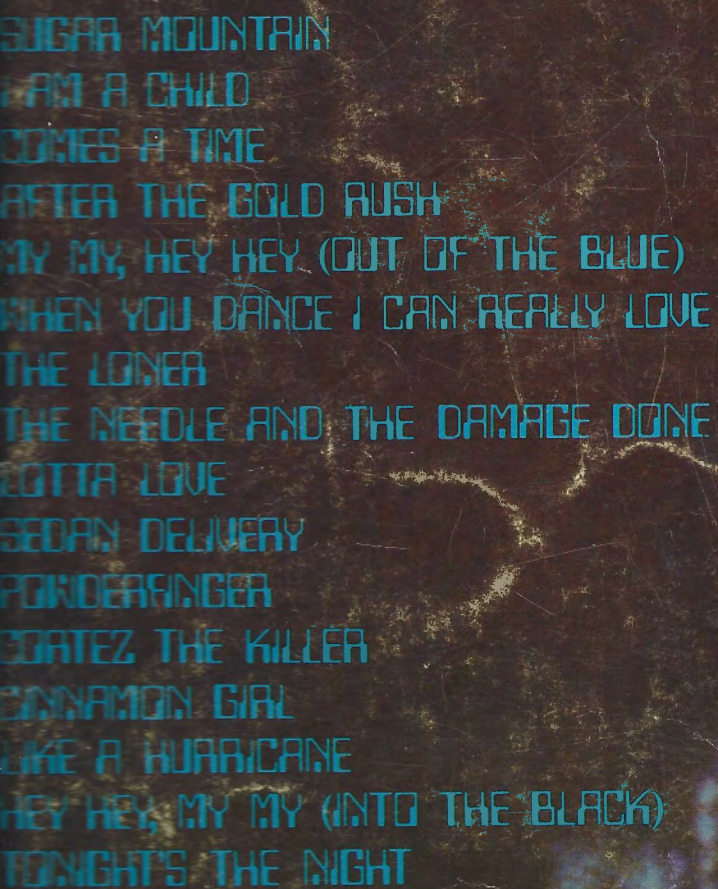 SUGAR MOUNTAIN
I AM A CHILD
COMES A TIME
AFTER THE GOLD RUSH
MY MY, HEY HEY (OUT OF THE BLUE)
WHEN YOU DANCE I CAN REALLY LOVE
THE LONER
THE NEEDLE AND THE DAMAGE DONE
LOTTA LOVE
SEDAN DELIVERY
POWDERFINGER
CORTEZ THE KILLER
CINNAMON GIRL
LIKE A HURRICANE
HEY HEY, MY MY (INTO THE BLACK)
TONIGHT'S THE NIGHT